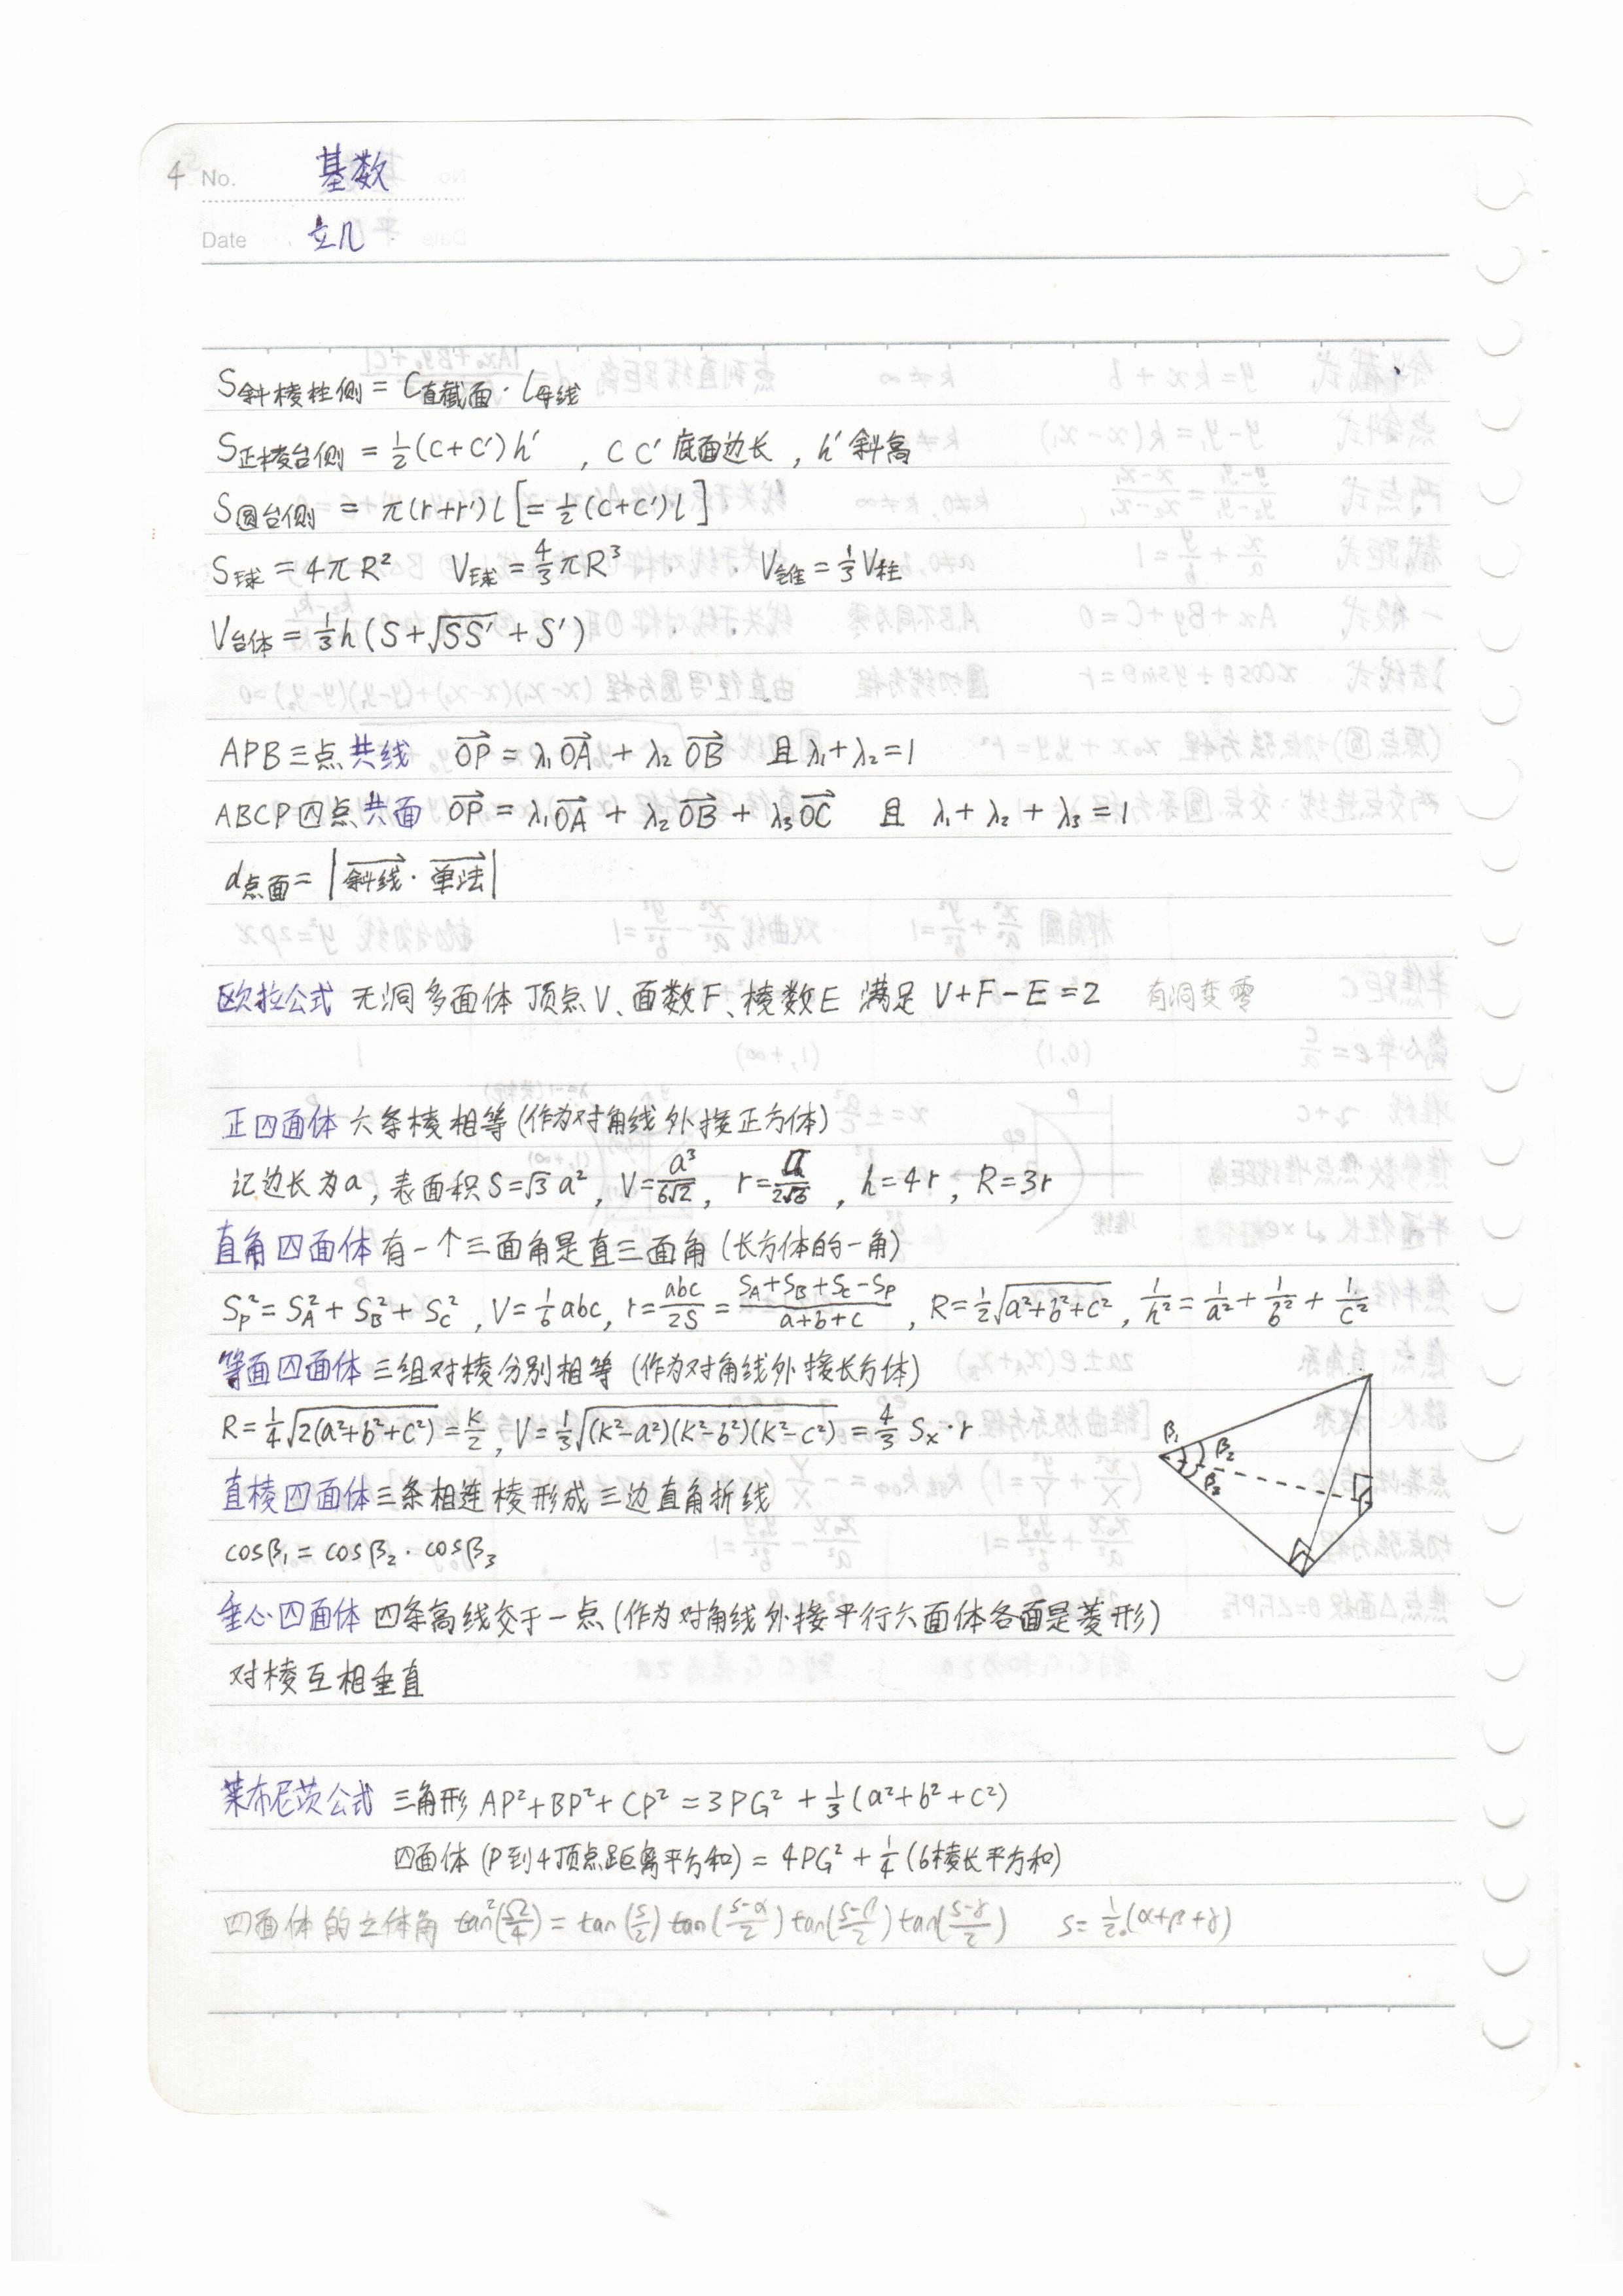 4 No. 基数
Date 立几
S斜棱柱侧 = C直截面 · l母线
S正棱台侧 = 1/2 (c+c')h' , c c' 底面边长 , h' 斜高
S圆台侧 = π(r+r')l [= 1/2 (c+c')l]
S球 = 4πR² V球 = 4/3 πR³ V锥 = 1/3 V柱
V台体 = 1/3 h (S+√SS' + S')
APB三点共线 OP→ = λ₁OA→ + λ₂OB→ 且 λ₁+λ₂=1
ABCP四点共面 OP→ = λ₁OA→ + λ₂OB→ + λ₃OC→ 且 λ₁+λ₂+λ₃=1
d点面 = |斜线→ · 单法→|
欧拉公式 无洞多面体 顶点V、面数F、棱数E 满足 V+F-E=2 有洞变零
正四面体 六条棱相等 (作为对角线外接正方体)
记边长为a, 表面积S=√3 a², V=a³/6√2, r=a/2√6, h=4r, R=3r
直角四面体 有一个三面角是直三面角 (长方体的一角)
Sp² = S_A² + S_B² + S_C² , V=1/6 abc, r=abc/2S = (S_A+S_B+S_C-Sp)/(a+b+c) , R=1/2 √(a²+b²+c²) , 1/h² = 1/a² + 1/b² + 1/c²
等面四面体 三组对棱分别相等 (作为对角线外接长方体)
R = 1/4 √(2(a²+b²+c²)) = K/2 , V = 1/3 √((K²-a²)(K²-b²)(K²-c²)) = 4/3 Sx·r
β₁ β₂ β₃
直棱四面体 三条相连棱形成三边直角折线
cosβ₁ = cosβ₂ · cosβ₃
垂心四面体 四条高线交于一点 (作为对角线外接平行六面体各面是菱形)
对棱互相垂直
莱布尼茨公式 三角形 AP²+BP²+CP² = 3PG² + 1/3 (a²+b²+c²)
四面体 (P到4顶点距离平方和) = 4PG² + 1/4 (6棱长平方和)
四面体的立体角 tan²(Ω/4) = tan(s/2) tan((s-α)/2) tan((s-β)/2) tan((s-γ)/2) s = 1/2 (α+β+γ)